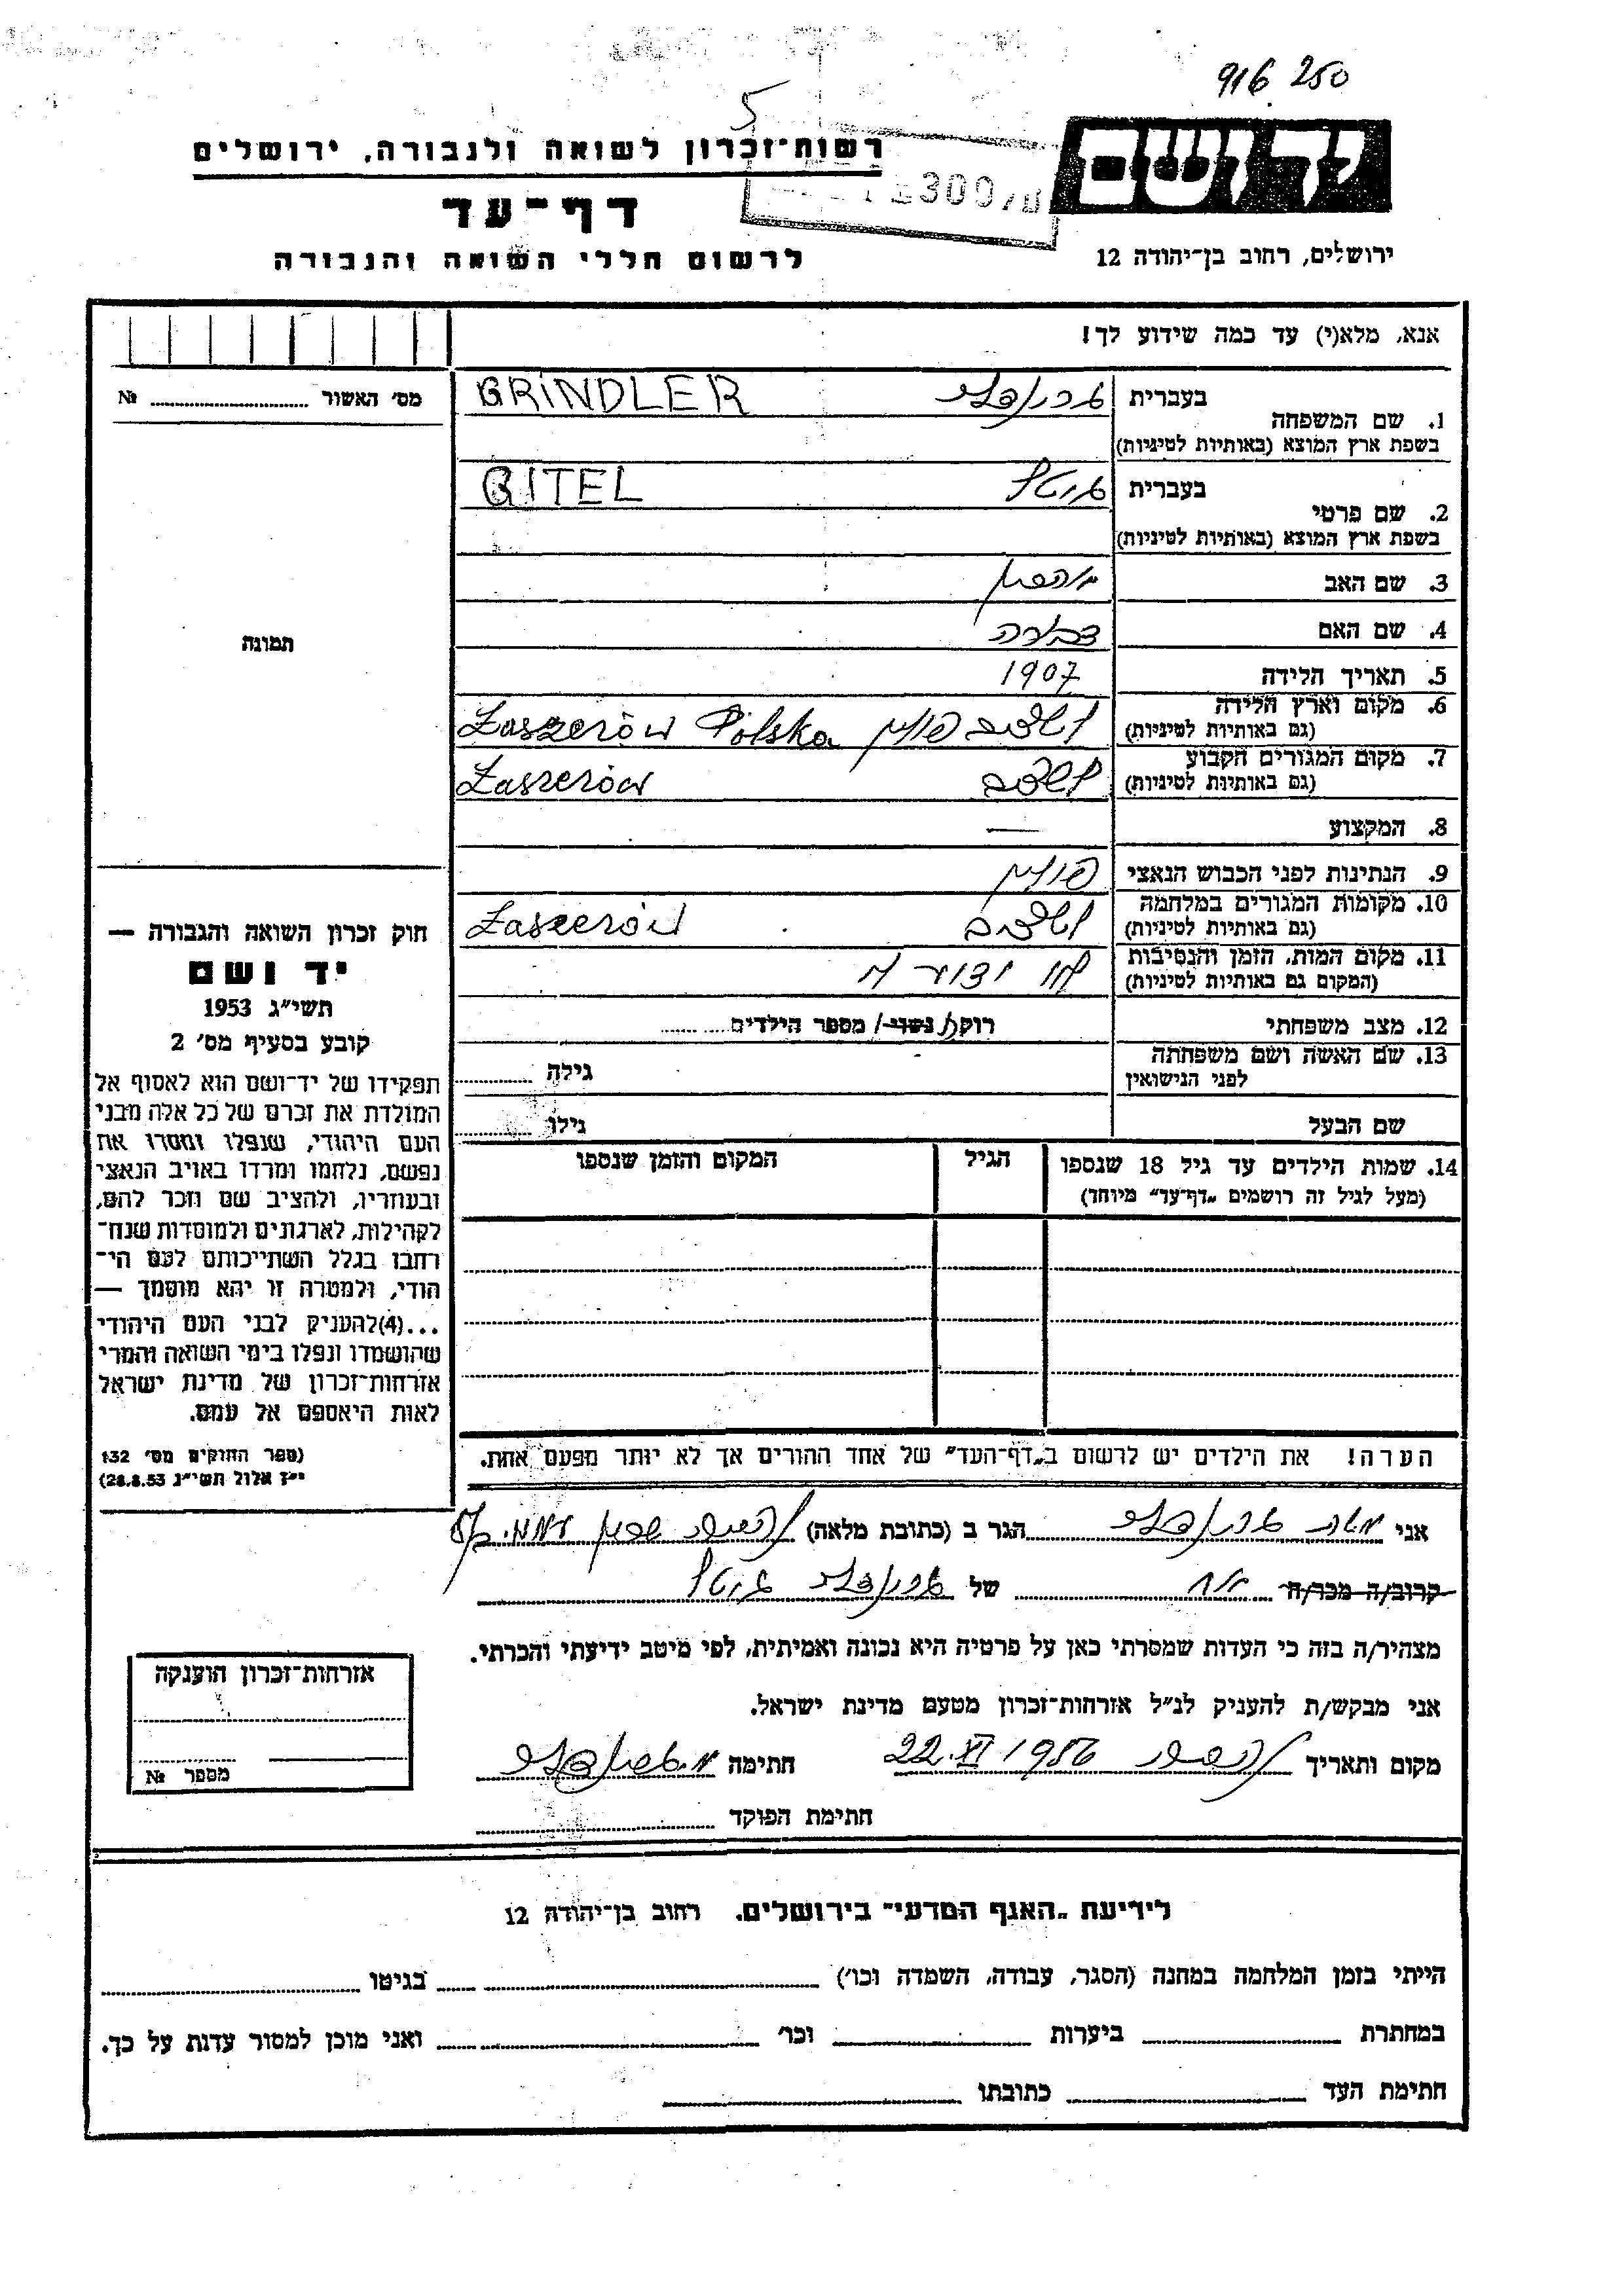 916 250
5
רשות־זכרון לשואה ולגבורה, ירושלים
דף־עד
לרשום חללי השואה והגבורה
יד ושם
ירושלים, רחוב בן־יהודה 12
אנא, מלא(י) עד כמה שידוע לך!
מס׳ האשור № 
תמונה
1. שם המשפחה
בעברית
GRINDLER
בשפת ארץ המוצא (באותיות לטיניות)
2. שם פרטי
בעברית גיטל
GITEL
בשפת ארץ המוצא (באותיות לטיניות)
3. שם האב
4. שם האם דבורה
5. תאריך הלידה 1907
6. מקום וארץ הלידה
(גם באותיות לטיניות)
פולין Łaszczerów Polska
7. מקום המגורים הקבוע
(גם באותיות לטיניות)
8. המקצוע —
9. הנתינות לפני הכבוש הנאצי פולין
10. מקומות המגורים במלחמה
(גם באותיות לטיניות)
11. מקום המות, הזמן והנסיבות
(המקום גם באותיות לטיניות)
לא ידוע לי
12. מצב משפחתי רוק/ נשוי/ מספר הילדים
13. שם האשה ושם משפחתה
לפני הנישואין
גילה
שם הבעל גילו
14. שמות הילדים עד גיל 18 שנספו
(מעל לגיל זה רושמים „דף־עד״ מיוחד)
הגיל
המקום והזמן שנספו
הערה! את הילדים יש לרשום ב„דף־העד״ של אחד ההורים אך לא יותר מפעם אחת.
חוק זכרון השואה והגבורה —
יד ושם
תשי״ג 1953
קובע בסעיף מס׳ 2
תפקידו של יד־ושם הוא לאסוף אל
המולדת את זכרם של כל אלה מבני
העם היהודי, שנפלו ומסרו את
נפשם, נלחמו ומרדו באויב הנאצי
ובעוזריו, ולהציב שם וזכר להם,
לקהילות, לארגונים ולמוסדות שנח־
רבו בגלל השתייכותם לעם הי־
הודי, ולמטרה זו יהא מוסמך —
...(4)להעניק לבני העם היהודי
שהושמדו ונפלו בימי השואה והמרי
אזרחות־זכרון של מדינת ישראל
לאות היאספם אל עמם.
(ספר החוקים מס׳ 132
י״ז אלול תשי״ג 28.8.53)
אני
הגר ב (כתובת מלאה)
קרוב/ה מכר/ה אח של גיטל
מצהיר/ה בזה כי העדות שמסרתי כאן על פרטיה היא נכונה ואמיתית, לפי מיטב ידיעתי והכרתי.
אני מבקש/ת להעניק לנ״ל אזרחות־זכרון מטעם מדינת ישראל.
מקום ותאריך 22.XI 1956 חתימה
חתימת הפוקד
אזרחות־זכרון הוענקה
מספר №
לידיעת „האגף המדעי״ בירושלים, רחוב בן־יהודה 12
הייתי בזמן המלחמה במחנה (הסגר, עבודה, השמדה וכו׳) בגיטו
במחתרת ביערות וכו׳ ואני מוכן למסור עדות על כך.
חתימת העד כתובתו